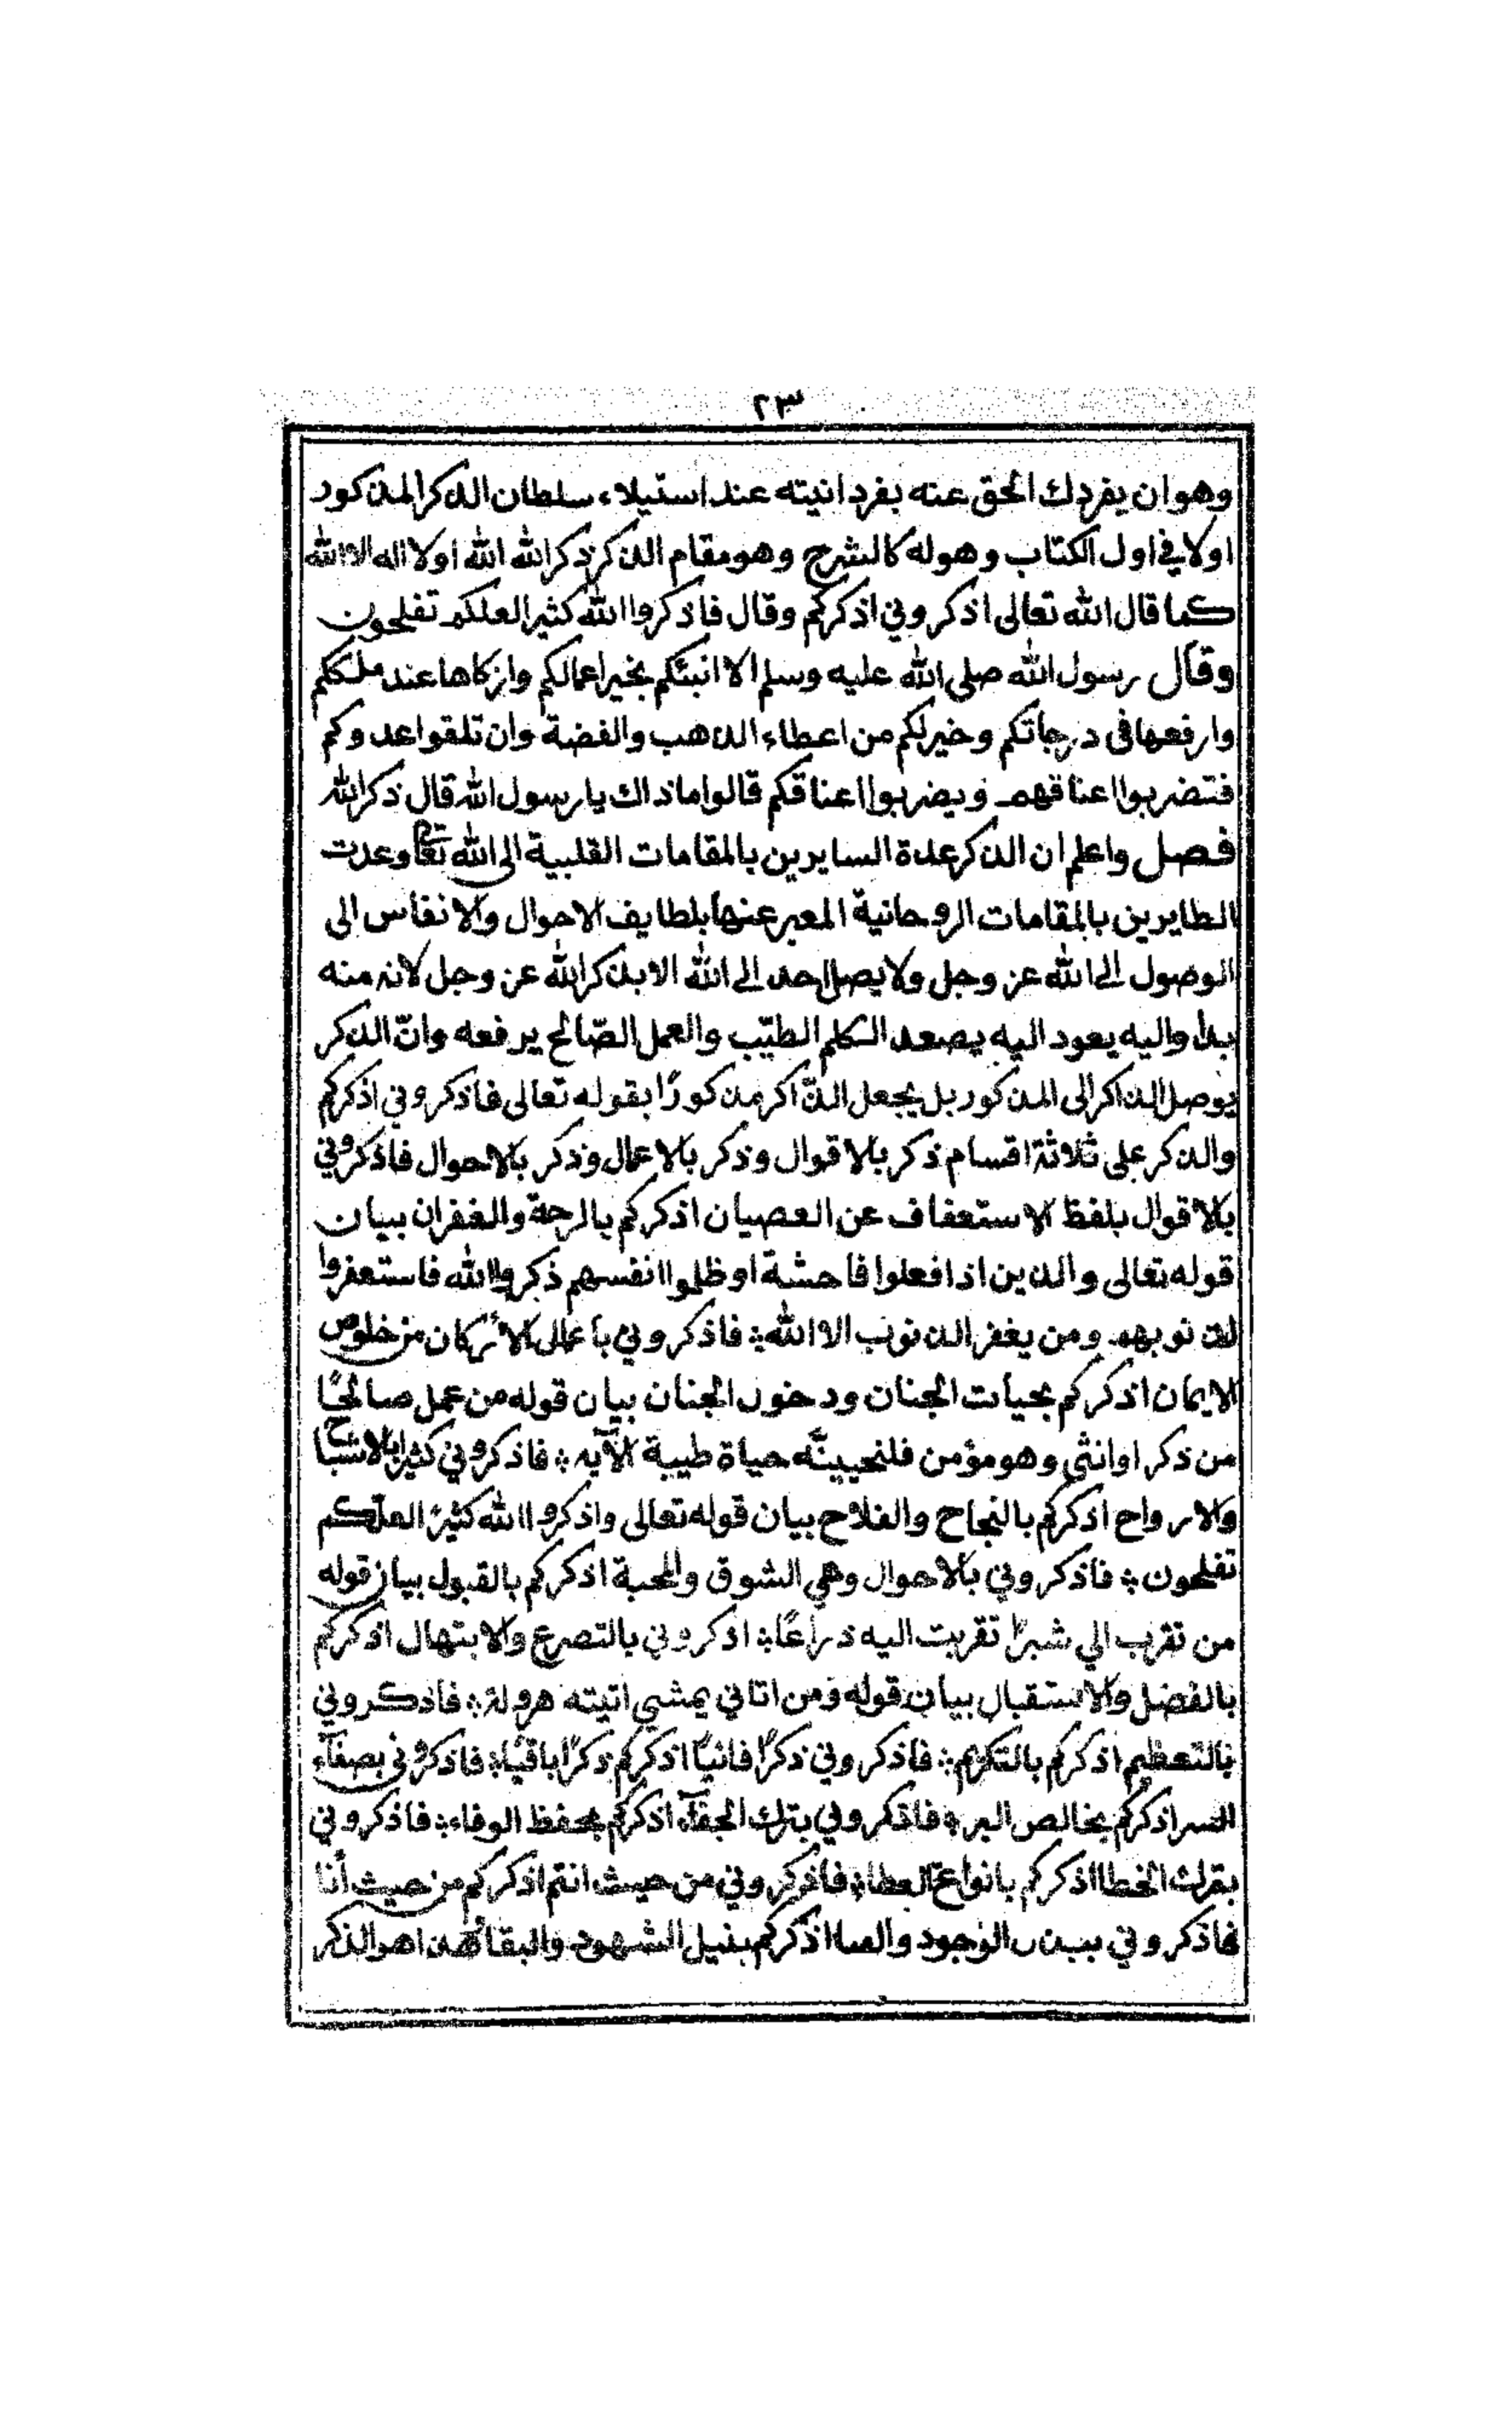 ٢٣
وهو ان يفردك الحق عنه بفردانيته عند استيلاء سلطان الذكر المذكور
اولا في اول الكتاب وهو له كالشرح وهو مقام الذكر ذكر الله الله او لا اله الا الله
كما قال الله تعالى اذكروني اذكركم وقال فاذكروا الله كثيرا لعلكم تفلحون
وقال رسول الله صلى الله عليه وسلم الا انبئكم بخير اعمالكم وازكاها عند مليككم
وارفعها في درجاتكم وخير لكم من اعطاء الذهب والفضة وان تلقوا عدوكم
فتضربوا اعناقهم ويضربوا اعناقكم قالوا ما ذاك يا رسول الله قال ذكر الله
فصل واعلم ان الذكر عدة السايرين بالمقامات القلبية الى الله تعا وعدت
الطايرين بالمقامات الروحانية المعبر عنها بلطايف الاحوال والانفاس الى
الوصول الى الله عز وجل ولا يصل احد الى الله الا بذكر الله عز وجل لانه منه
بدأ واليه يعود اليه يصعد الكلم الطيّب والعمل الصّالح يرفعه وانّ الذكر
يوصل الذاكر الى المذكور بل يجعل الذّاكر مذكورًا بقوله تعالى فاذكروني اذكركم
والذكر على ثلاثة اقسام ذكر بالاقوال وذكر بالاعمال وذكر بالاحوال فاذكروني
بالاقوال بلفظ الاستعفاف عن العصيان اذكركم بالرحمة والغفران ببيان
قوله تعالى والذين اذا فعلوا فاحشة او ظلموا انفسهم ذكروا الله فاستغفروا
لذنوبهم ومن يغفر الذنوب الا الله ؞ فاذكروني باعمال الاركان من خلوص
الايمان اذكركم بحيات الجنان ودخول الجنان بيان قوله من عمل صالحًا
من ذكر او انثى وهو مؤمن فلنحيينّه حياة طيبة الآيه ؞ فاذكروني كثيرا بالاشباح
والارواح اذكركم بالنجاح والفلاح بيان قوله تعالى واذكروا الله كثيرًا لعلّكم
تفلحون ؞ فاذكروني بالاحوال وهي الشوق والمحبة اذكركم بالقبول بيان قوله
من تقرب الي شبرًا تقربت اليه ذراعًا ؞ اذكروني بالتصرع والابتهال اذكركم
بالفضل والاستقبال ببيان قوله ومن اتاني يمشي اتيته هرولة ؞ فاذكروني
بالتعظيم اذكركم بالتكريم ؞ فاذكروني ذكرًا فانيًا اذكركم ذكرًا باقيًا ؞ فاذكروني بصفآء
السر اذكركم بخالص البر ؞ فاذكروني بترك الجفآء اذكركم بحفظ الوفاء ؞ فاذكروني
بترك الخطا اذكركم بانواع العطا ؞ فاذكروني من حيث انتم اذكركم من حيث أنا
فاذكروني الوجود اذكركم بنيل الشهود والبقا هذا هو الذكر